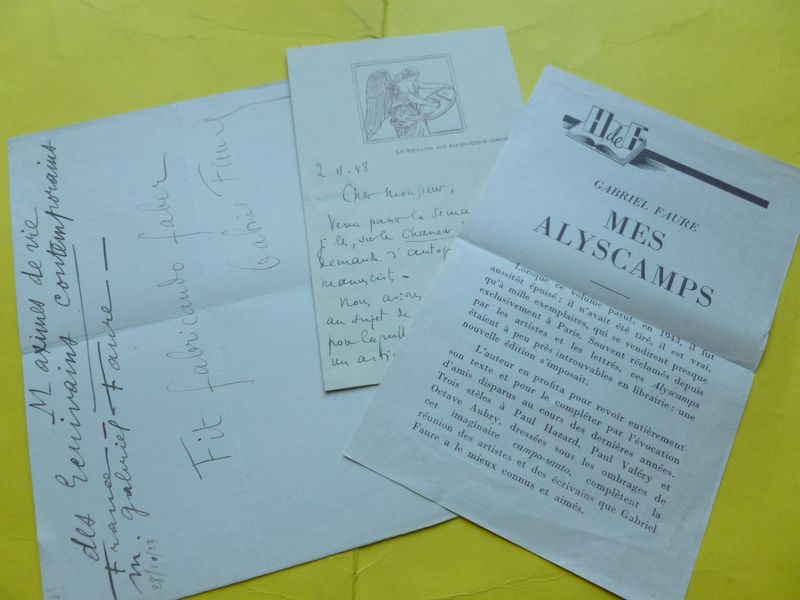 Maximes de vie
des Ecrivains contemporains
France
M. Gabriel Faure
28/10/23
Fit fabricando faber
Gabriel Faure
2 11 48
Cher Monsieur,
Venu passer la sema
ici, sur le
demande d'autog
manuscrits -
Nous avions
au sujet de
un artic
H de F
GABRIEL FAURE
MES
ALYSCAMPS
Lorsque ce volume parut, en 1943, il fut
aussitôt épuisé : il n'avait été tiré, il est vrai,
qu'à mille exemplaires, qui se vendirent presque
exclusivement à Paris. Souvent réclamés depuis
par les artistes et les lettrés, ces Alyscamps
étaient à peu près introuvables en librairie : une
nouvelle édition s'imposait.
L'auteur en profita pour revoir entièrement
son texte et pour le compléter par l'évocation
d'amis disparus au cours des dernières années.
Trois stèles à Paul Hazard, Paul Valéry et
Octave Aubry, dressées sous les ombrages de
cet imaginaire campo-santo, complètent la
réunion des artistes et des écrivains que Gabriel
Faure a le mieux connus et aimés.